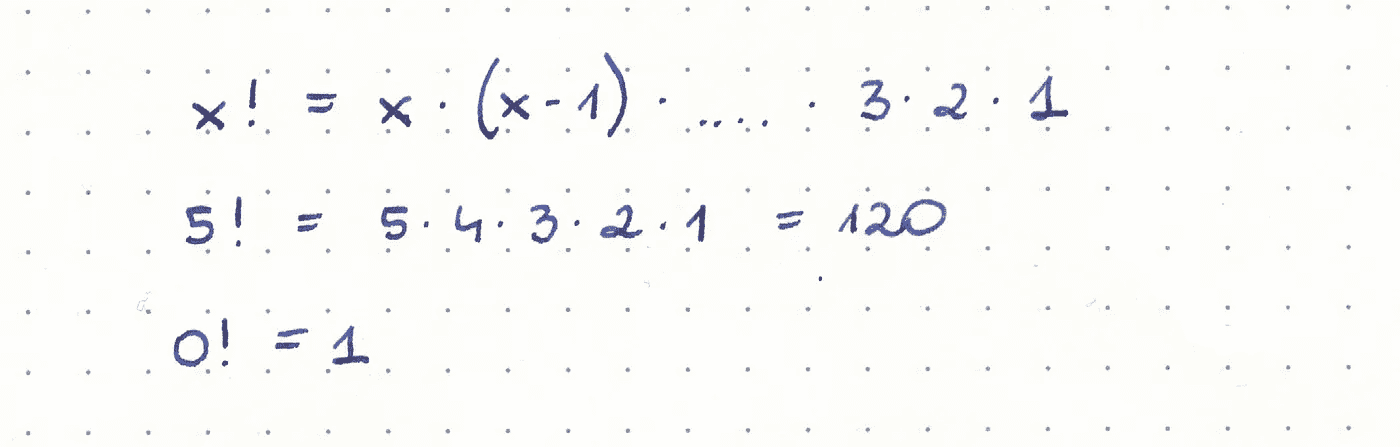 x! = x · (x - 1) · .... · 3 · 2 · 1
5! = 5 · 4 · 3 · 2 · 1 = 120
0! = 1